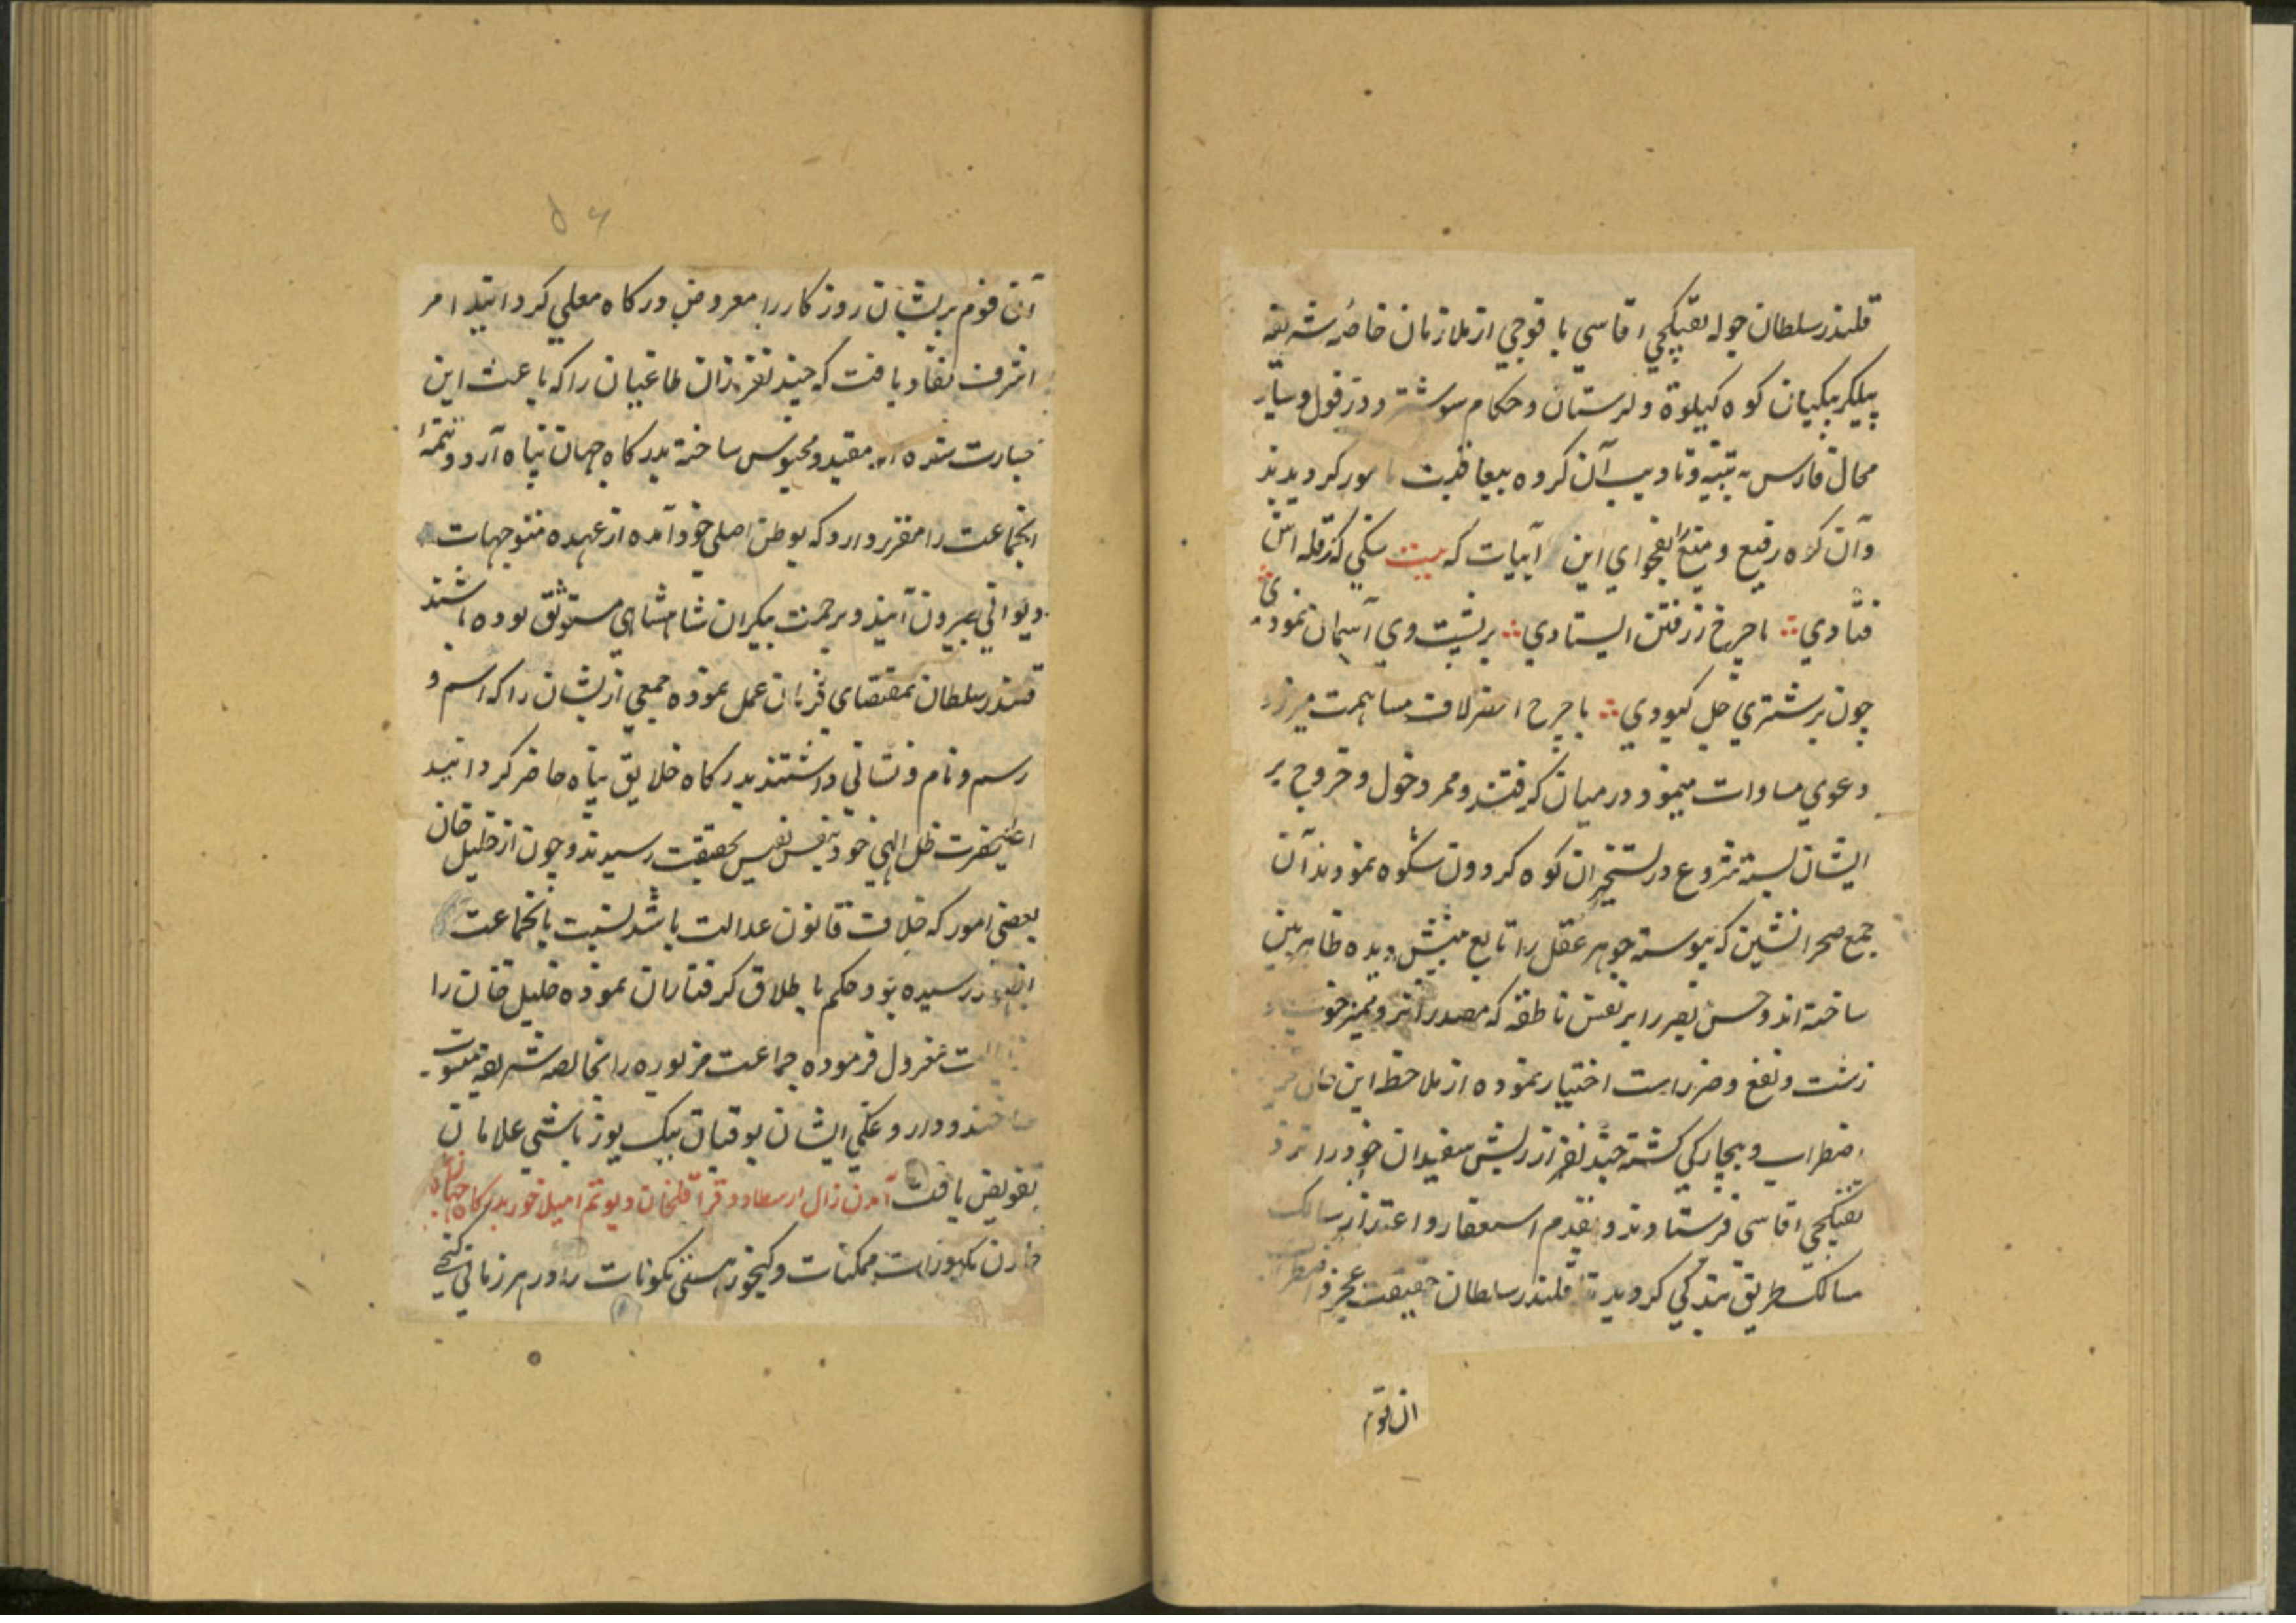 قلندر سلطان جوله تفنکچي اقاسي با فوجي از ملازمان خاصهٔ شریفه
بیکلربیکیان کوه کیلویه و لرستان و حکام شوشتر و دزفول و سایر
محال فارس به تنبیه و تادیب آن کروه بیعاقبت مامور کردیدند
و آن کوه رفیع و منیع را بفحوای این ابیات که بیت سنکي که ز قله اش
فتادي با چرخ ز رفتن ایستادي بر پشت وي آسمان نمودي
چون بر شتري جل کبودي با چرخ اخضر لاف مساهمت میزد و
دعوي مساوات مینمود در میان کرفتند و ممر دخول و خروج بر
ایشان بسته شروع در تسخیر ان کوه کردون شکوه نمودند آن
جمع صحرانشین که پیوسته جوهر عقل را تابع بینش دیده ظاهربین
ساخته اند و حسن بصر را بر نفس ناطقه که مصدر اثر و ممیز خوب و
زشت و نفع و ضرر است اختیار نموده از ملاحظه این حال
اضطراب و بیچارکي کشته چند نفر از ریش سفیدان خود را نزد
تفنکچي اقاسي فرستادند و بقدم استغفار و اعتذار سالک
مسالک طریق بندکي کردیدند قلندر سلطان حقیقت عجز و اضطرار
ان قوم
۵۶
آن قوم پریشان روزکار را معروض درکاه معلي کردانید امر
اشرف نفاذ یافت که چند نفر از ان طاغیان را که باعث این
جسارت شده اند مقید و محبوس ساخته بدرکاه جهان پناه آرد و تتمهٔ
انجماعت را مقرر دارد که بوطن اصلي خود آمده از عهده متوجهات
دیواني بیرون آیند و برحمت بیکران شاهنشاهي مستوثق بوده باشند
قلندر سلطان بمقتضای فرمان عمل نموده جمعي از یشان را که اسم و
رسم و نام و نشاني داشتند بدرکاه خلایق پناه حاضر کردانید
اعلیحضرت ظل الهي خود بنفس نفیس بحقیقت رسیدند و چون از خلیل خان
بعضي امور که خلاف قانون عدالت باشد نسبت بانجماعت
بظهور رسیده بود حکم باطلاق کرفتاران نموده خلیل خان را
از ایالت معزول فرموده جماعت مزبوره را بخالصه شریفه منسوب
ساختند و داروغکي ایشان بوقبان بیک یوزباشي غلامان
تفویض یافت آمدن زال ارسطاو و قراقلخان و یوتم امیلاخور بدرکاه جهان پناه
خازن مکنوزات ممکنات و کنجور هستي مکونات را در هر زماني کنجي